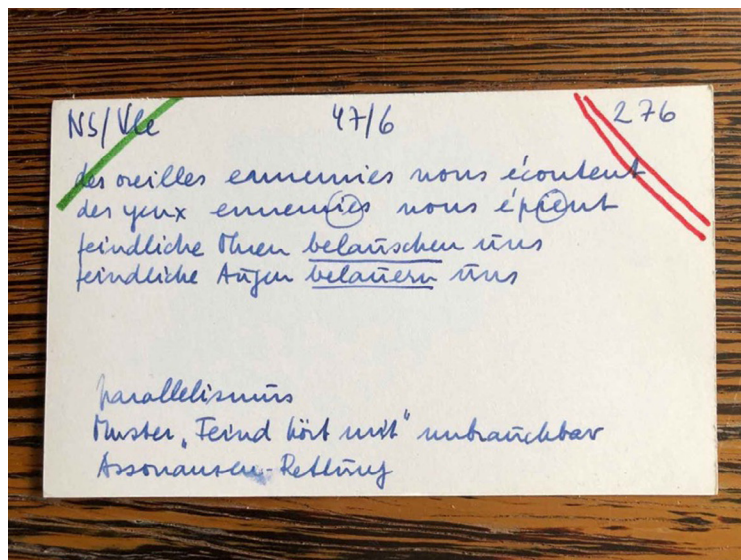 NS/Vle 47/6 276
des oreilles ennemies nous écoutent
des yeux ennemies nous épient
feindliche Ohren belauschen uns
feindliche Augen belauern uns
parallelismus
Muster „Feind hört mit" unbrauchbar
Assonanzen-Rettung